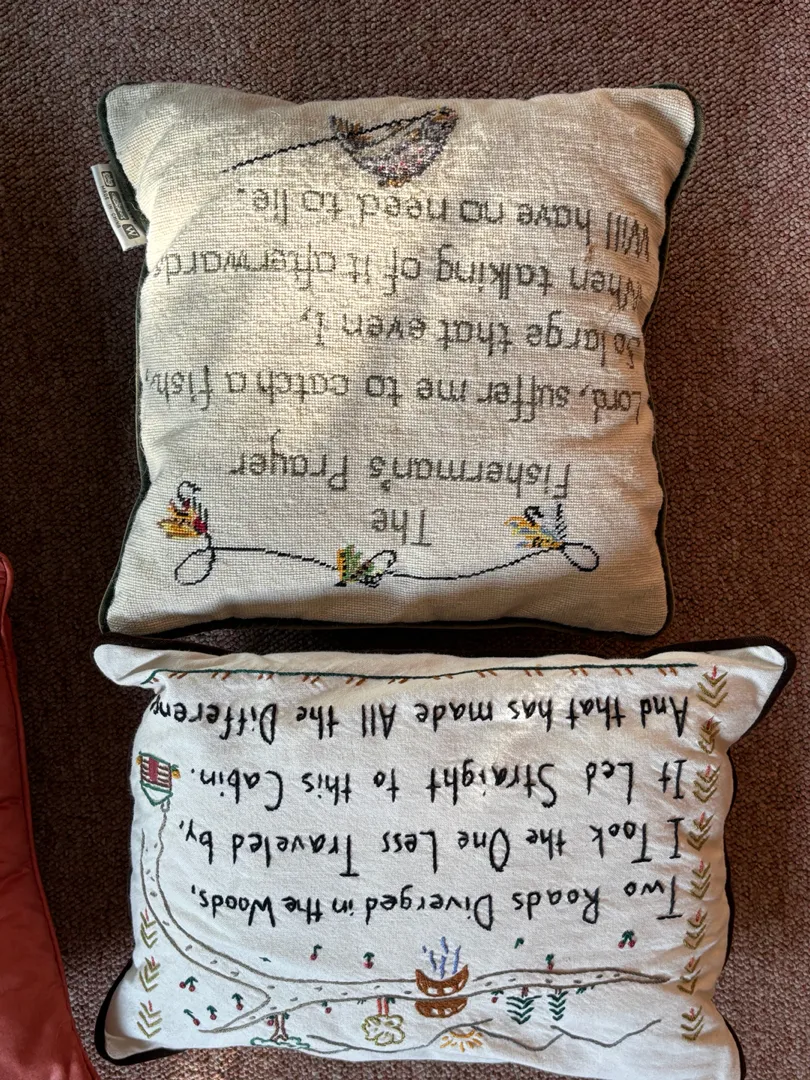 The
Fisherman's Prayer
Lord, suffer me to catch a fish,
So large that even I,
When talking of it afterwards
Will have no need to lie.
Two Roads Diverged in the Woods,
I Took the One Less Traveled by,
It Led Straight to this Cabin.
And that has made All the Differenc